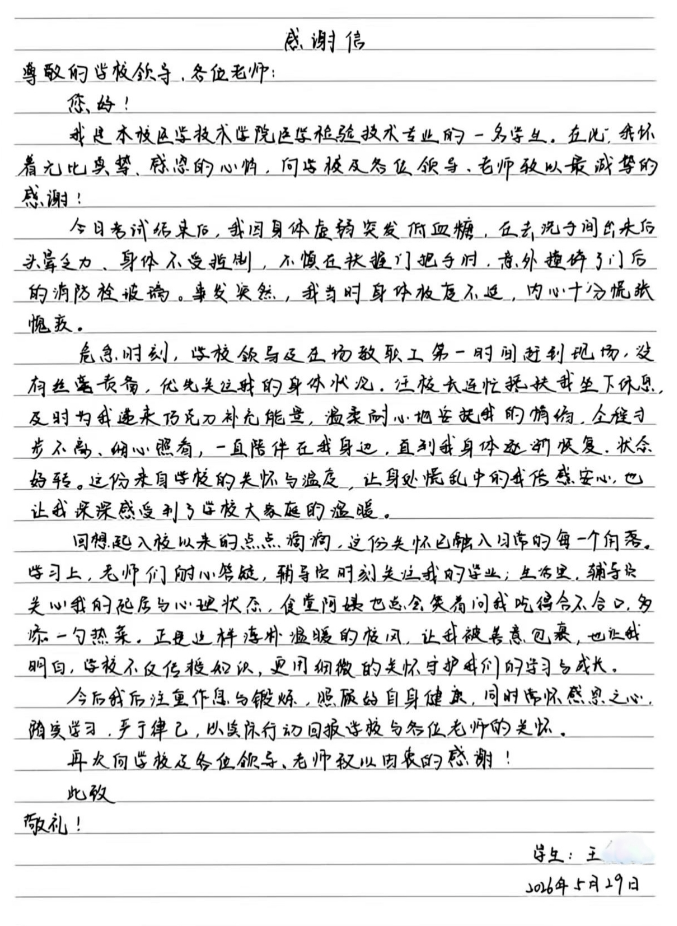 感谢信
尊敬的学校领导、各位老师:
您好!
我是本校医学技术学院医学检验技术专业的一名学生。在此,我怀
着无比真挚、感恩的心情,向学校及各位领导、老师致以最诚挚的
感谢!
今日考试结束后,我因身体虚弱突发低血糖,在去洗手间出来后
头晕乏力、身体不受控制,不慎在扶握门把手时,意外撞碎了门后
的消防栓玻璃。事发突然,我当时身体极度不适,内心十分慌张
愧疚。
危急时刻,学校领导及在场教职工第一时间赶到现场,没
有丝毫责备,优先关注我的身体状况。汪校长连忙搀扶我坐下休息,
及时为我递来巧克力补充能量,温柔耐心地安抚我的情绪,全程寸
步不离、细心照看,一直陪伴在我身边,直到我身体逐渐恢复、状态
好转。这份来自学校的关怀与温度,让身处慌乱中的我倍感安心,也
让我深深感受到了学校大家庭的温暖。
回想起入校以来的点点滴滴,这份关怀已融入日常的每一个角落。
学习上,老师们耐心答疑,辅导员时刻关注我的学业;生活里,辅导员
关心我的起居与心理状态,食堂阿姨也总会笑着问我吃得合不合口,多
添一勺热菜。正是这样淳朴温暖的校风,让我被善意包裹,也让我
明白,学校不仅传授知识,更用细微的关怀守护我们的学习与成长。
今后我后注重作息与锻炼,照顾好自身健康,同时常怀感恩之心,
踏实学习,严于律己,以实际行动回报学校与各位老师的关怀。
再次向学校及各位领导、老师致以由衷的感谢!
此致
敬礼!
学生:王
2026年5月29日